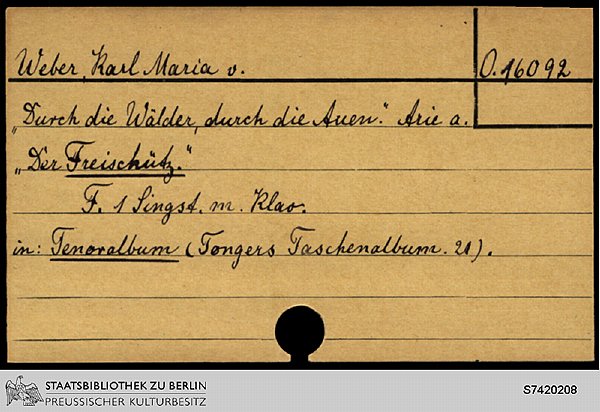 Weber, Karl Maria v.
O. 16092
„Durch die Wälder, durch die Auen." Arie a.
„Der Freischütz."
F. 1 Singst. m. Klav.
in: Tenoralbum (Tongers Taschenalbum. 21).
STAATSBIBLIOTHEK ZU BERLIN
PREUSSISCHER KULTURBESITZ
S7420208